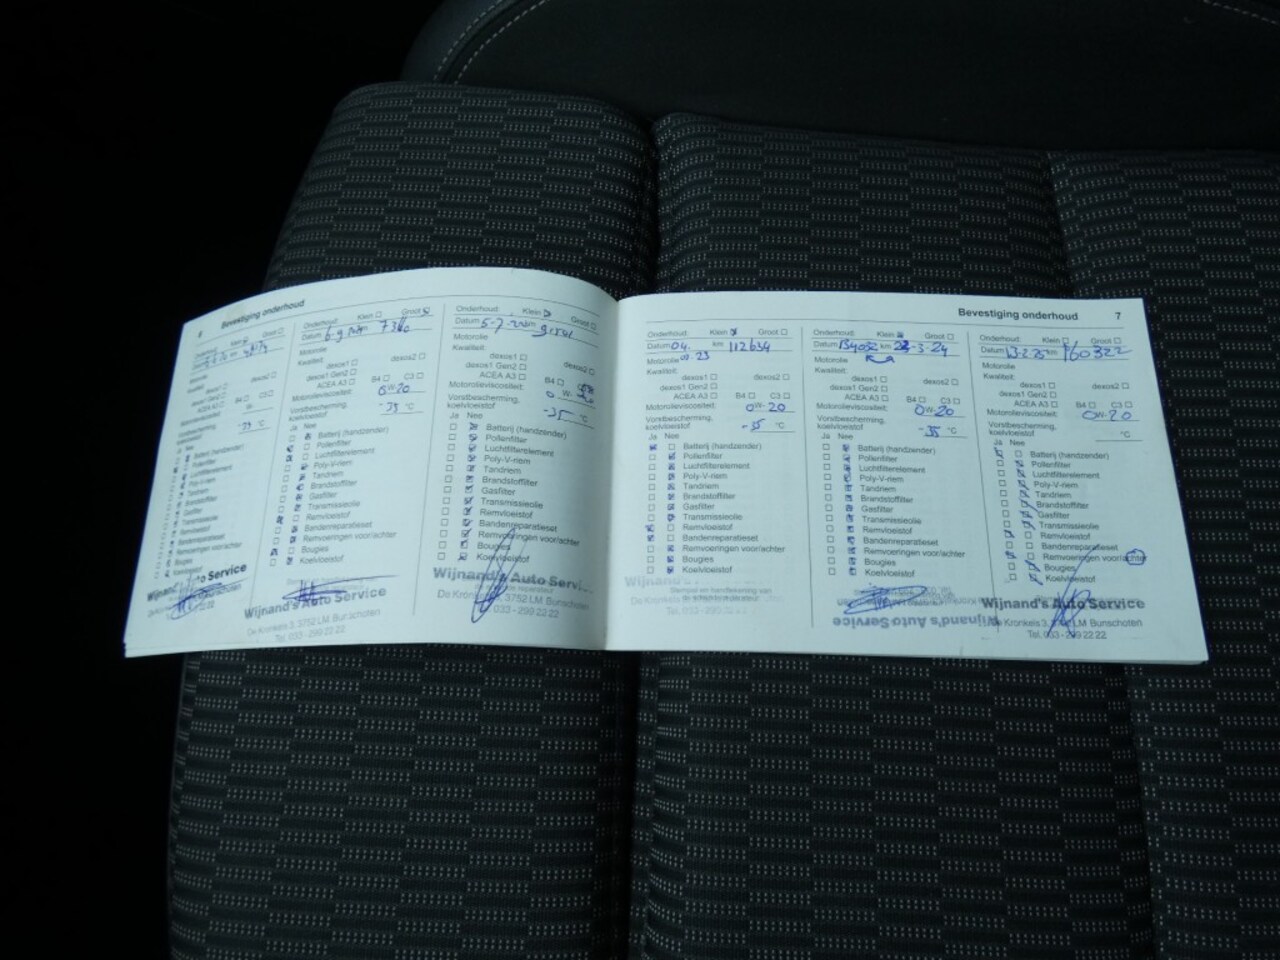 6 Bevestiging onderhoud
Onderhoud: Klein
Groot
Datum km
Kwaliteit:
dexos2
ACEA A3 B4 C3
Motorolieviscositeit: W-
Vorstbescherming,
koelvloeistof °C
Ja Nee
Batterij (handzender)
Pollenfilter
Luchtfilterelement
Poly-V-riem
Tandriem
Brandstoffilter
Gasfilter
Transmissieolie
Remvloeistof
Bandenreparatieset
Remvoeringen voor/achter
Bougies
Koelvloeistof
Onderhoud: Klein Groot
Datum km
Motorolie
Kwaliteit:
dexos1 dexos2
dexos1 Gen2
ACEA A3 B4 C3
Motorolieviscositeit: 0W-20
Vorstbescherming,
koelvloeistof °C
Ja Nee
Batterij (handzender)
Pollenfilter
Luchtfilterelement
Poly-V-riem
Tandriem
Brandstoffilter
Gasfilter
Transmissieolie
Remvloeistof
Bandenreparatieset
Remvoeringen voor/achter
Bougies
Koelvloeistof
Wijnand's Auto Service
De Kronkels 3, 3752 LM Bunschoten
Tel. 033 - 299 22 22
Onderhoud: Klein Groot
Datum 5-7- km
Motorolie
Kwaliteit:
dexos1 dexos2
dexos1 Gen2
ACEA A3 B4
Motorolieviscositeit: 0 W-
Vorstbescherming,
koelvloeistof -35 °C
Ja Nee
Batterij (handzender)
Pollenfilter
Luchtfilterelement
Poly-V-riem
Tandriem
Brandstoffilter
Gasfilter
Transmissieolie
Remvloeistof
Bandenreparatieset
Remvoeringen voor/achter
Bougies
Koelvloeistof
Wijnand's Auto Service
De Kronkels 3, 3752 LM Bunschoten
033 - 299 22 22
Bevestiging onderhoud 7
Onderhoud: Klein Groot
Datum 04. km 112634
Motorolie 23
Kwaliteit:
dexos1 dexos2
dexos1 Gen2
ACEA A3 B4 C3
Motorolieviscositeit: 0W-20
Vorstbescherming,
koelvloeistof -35 °C
Ja Nee
Batterij (handzender)
Pollenfilter
Luchtfilterelement
Poly-V-riem
Tandriem
Brandstoffilter
Gasfilter
Transmissieolie
Remvloeistof
Bandenreparatieset
Remvoeringen voor/achter
Bougies
Koelvloeistof
Wijnand's
Stempel en handtekening van
De Kronkels 3,
Tel. 033 - 299 22
Onderhoud: Klein Groot
Datum km -3-24
Motorolie
Kwaliteit:
dexos1 dexos2
dexos1 Gen2
ACEA A3 B4 C3
Motorolieviscositeit: 0W-20
Vorstbescherming,
koelvloeistof -35 °C
Ja Nee
Batterij (handzender)
Pollenfilter
Luchtfilterelement
Poly-V-riem
Tandriem
Brandstoffilter
Gasfilter
Transmissieolie
Remvloeistof
Bandenreparatieset
Remvoeringen voor/achter
Bougies
Koelvloeistof
Wijnand's Auto Service
Onderhoud: Klein Groot
Datum 13-2-25 km 160322
Motorolie
Kwaliteit:
dexos1 dexos2
dexos1 Gen2
ACEA A3 B4 C3
Motorolieviscositeit: 0W-20
Vorstbescherming,
koelvloeistof °C
Ja Nee
Batterij (handzender)
Pollenfilter
Luchtfilterelement
Poly-V-riem
Tandriem
Brandstoffilter
Gasfilter
Transmissieolie
Remvloeistof
Bandenreparatieset
Remvoeringen voor/achter
Bougies
Koelvloeistof
Wijnand's Auto Service
De Kronkels 3, 3752 LM Bunschoten
Tel. 033 - 299 22 22